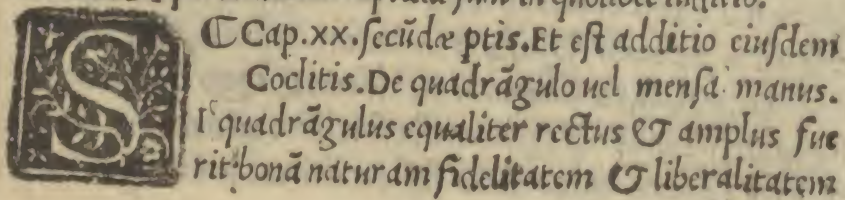 ℂCap.xx.ſecũdæ ptis.Et eſt additio eiuſdem
Coclitis.De quadrãgulo uel menſa manus.
SI quadrãgulus equaliter rectus & amplus fue
rit:bonã naturam fidelitatem & liberalitatem